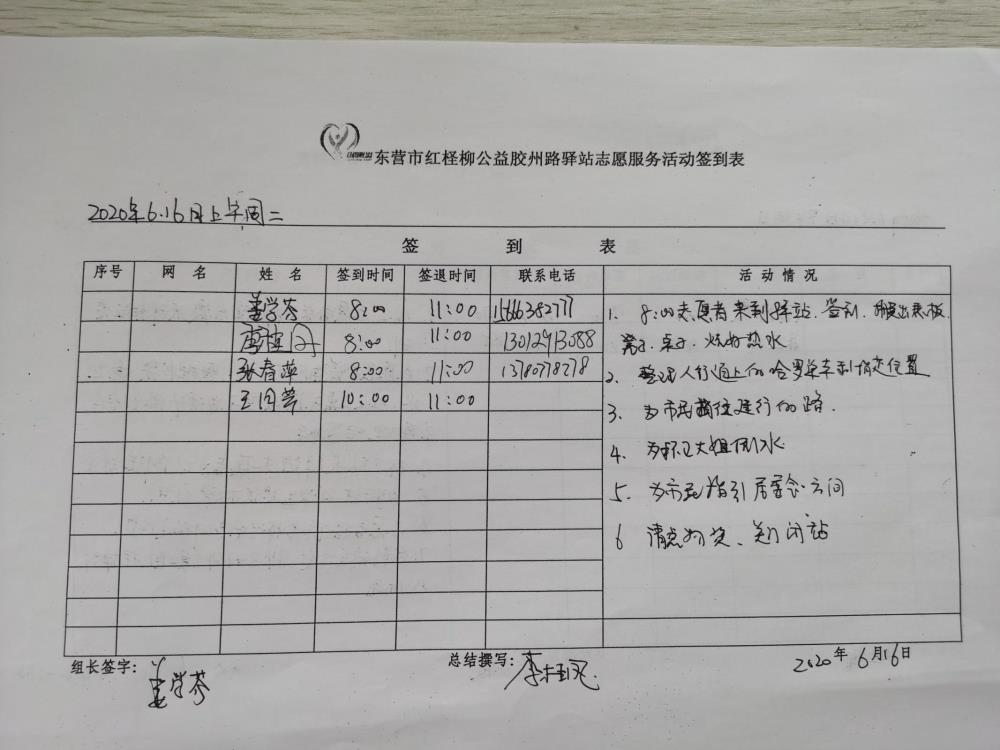 东营市红柽柳公益胶州路驿站志愿服务活动签到表
2020年6.16日上午周二
签 到 表
序号 网 名 姓 名 签到时间 签退时间 联系电话 活 动 情 况
姜学芬 8:00 11:00 15666382777
8:00 11:00 13012913088
张春萍 8:00 11:00 13780778278
王 10:00 11:00
1. 8:00志愿者来到驿站.签到.搬出展板
桌子.烧好热水
2. 整理人行道上的哈罗单车到指定位置
3. 为市民指 行的路.
4. 为环卫大姐倒水
5. 为市民指引居委会
6 清点物资、关门闭站
组长签字: 姜学芬
总结撰写: 李桂凤
2020年6月16日